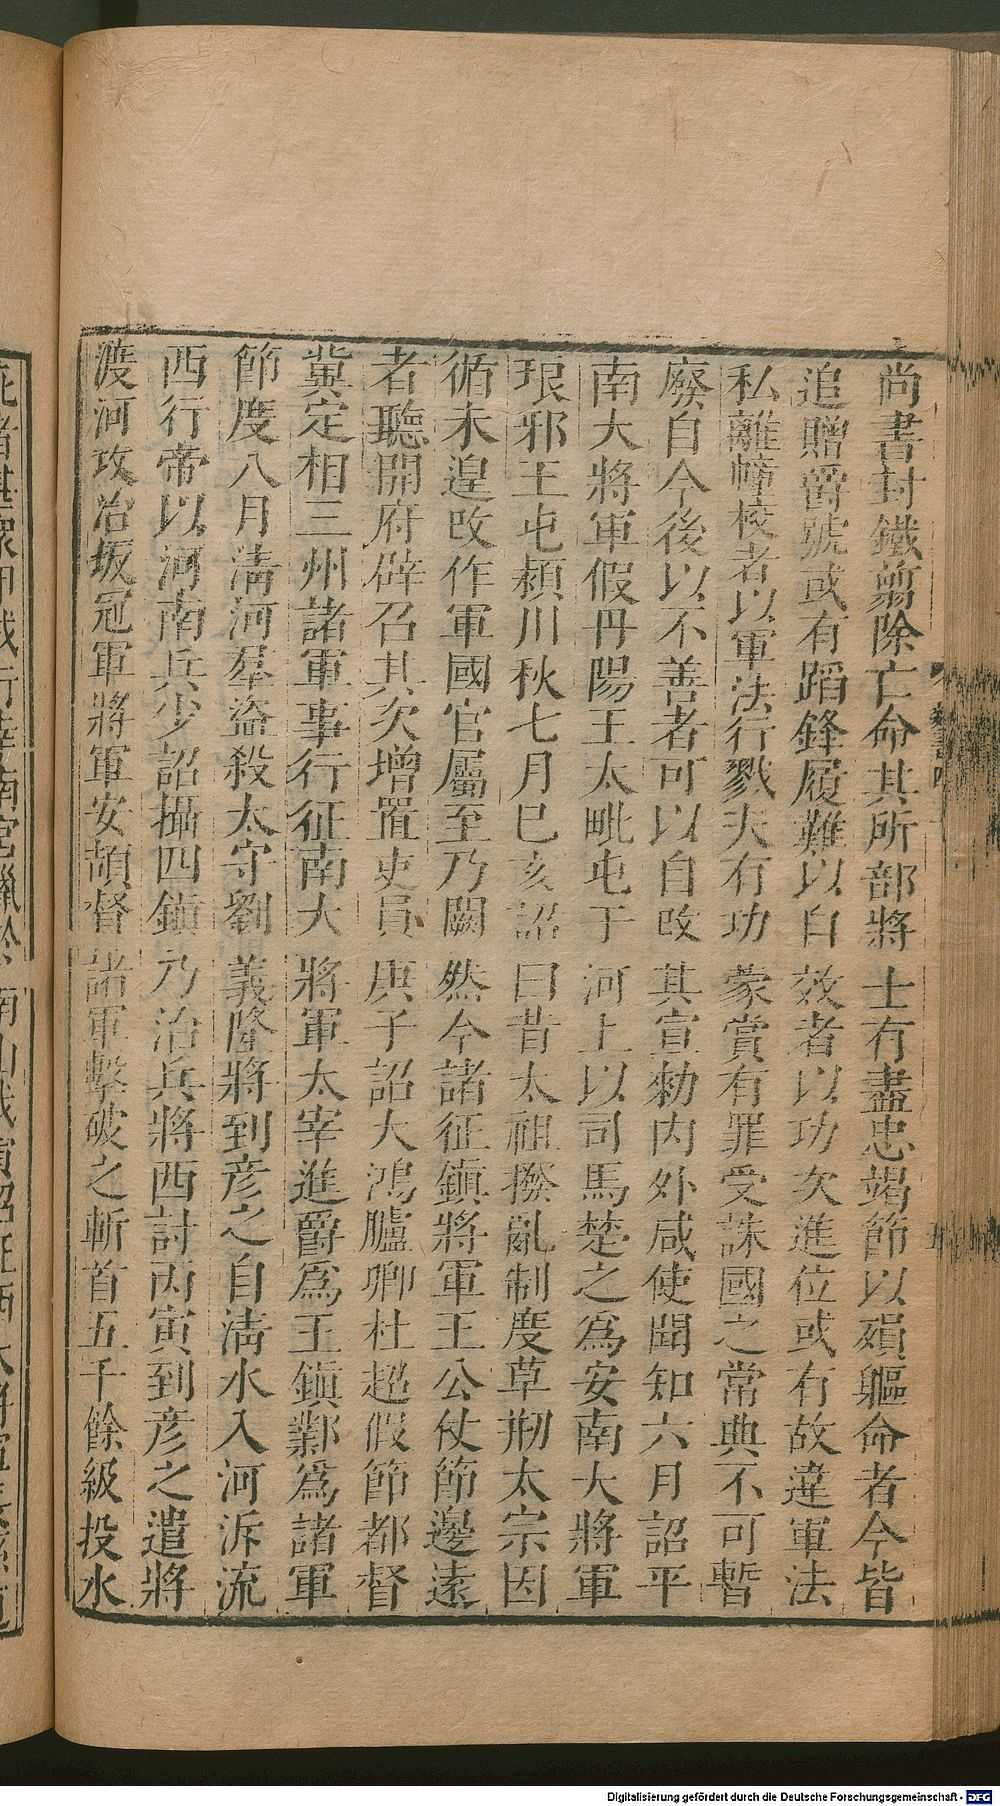 尚書封鐵翦除亡命其所部將士有盡忠竭節以殞軀命者今皆
追贈爵號或有蹈鋒履難以自效者以功次進位或有故違軍法
私離幢校者以軍法行戮夫有功蒙賞有罪受誅國之常典不可暫
廢自今後以不善者可以自改其宣勑內外咸使聞知六月詔平
南大將軍假丹陽王太毗屯于河上以司馬楚之為安南大將軍
琅邪王屯潁川秋七月巳亥詔曰昔太祖撥亂制度草剏太宗因
循未遑改作軍國官屬至乃闕然今諸征鎮將軍王公仗節邊遠
者聽開府辟召其次增置吏員庚子詔大鴻臚卿杜超假節都督
冀定相三州諸軍事行征南大將軍太宰進爵為王鎮鄴為諸軍
節度八月清河羣盜殺太守劉義隆將到彥之自清水入河泝流
西行帝以河南兵少詔攝四鎮乃治兵將西討丙寅到彥之遣將
渡河攻冶坂冠軍將軍安頡督諸軍擊破之斬首五千餘級投水
Digitalisierung gefördert durch die Deutsche Forschungsgemeinschaft - DFG